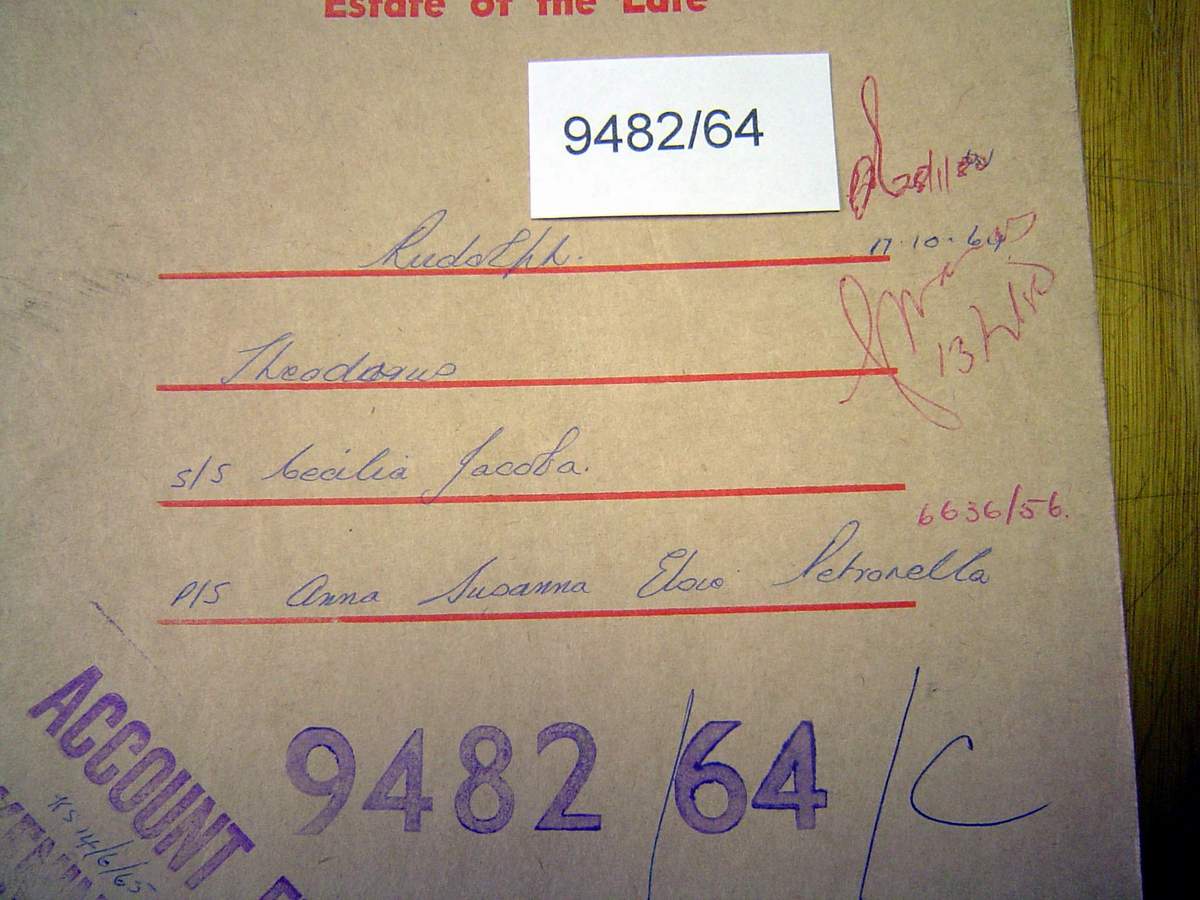 Estate of the Late
9482/64
28/1/80
Rudolph.
17.10.64
Theodorus
13/2/80
s/s Cecilia Jacoba.
6636/56.
P/S Anna Susanna Elsie Petronella
9482/64/C
ACCOUNT
14/6/65